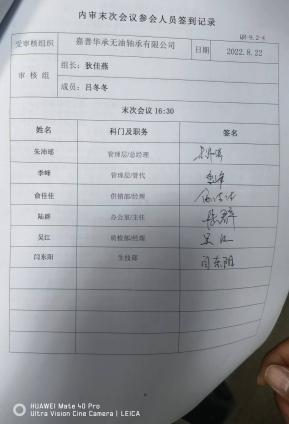 内审末次会议参会人员签到记录
QR-9.2-4
受审核组织 嘉善华承无油轴承有限公司 日期 2022.8.22
审核组 组长：狄佳燕
成员：吕冬冬
末次会议 16:30
姓名 科门及职务 签名
朱沛瑶 管理层/总经理
李峰 管理层/管代 李峰
俞佳佳 供销部/经理 俞佳佳
陆群 办公室/主任 陆群
吴江 质检部/经理 吴江
闫东阳 生技部 闫东阳
HUAWEI Mate 40 Pro
Ultra Vision Cine Camera | LEICA